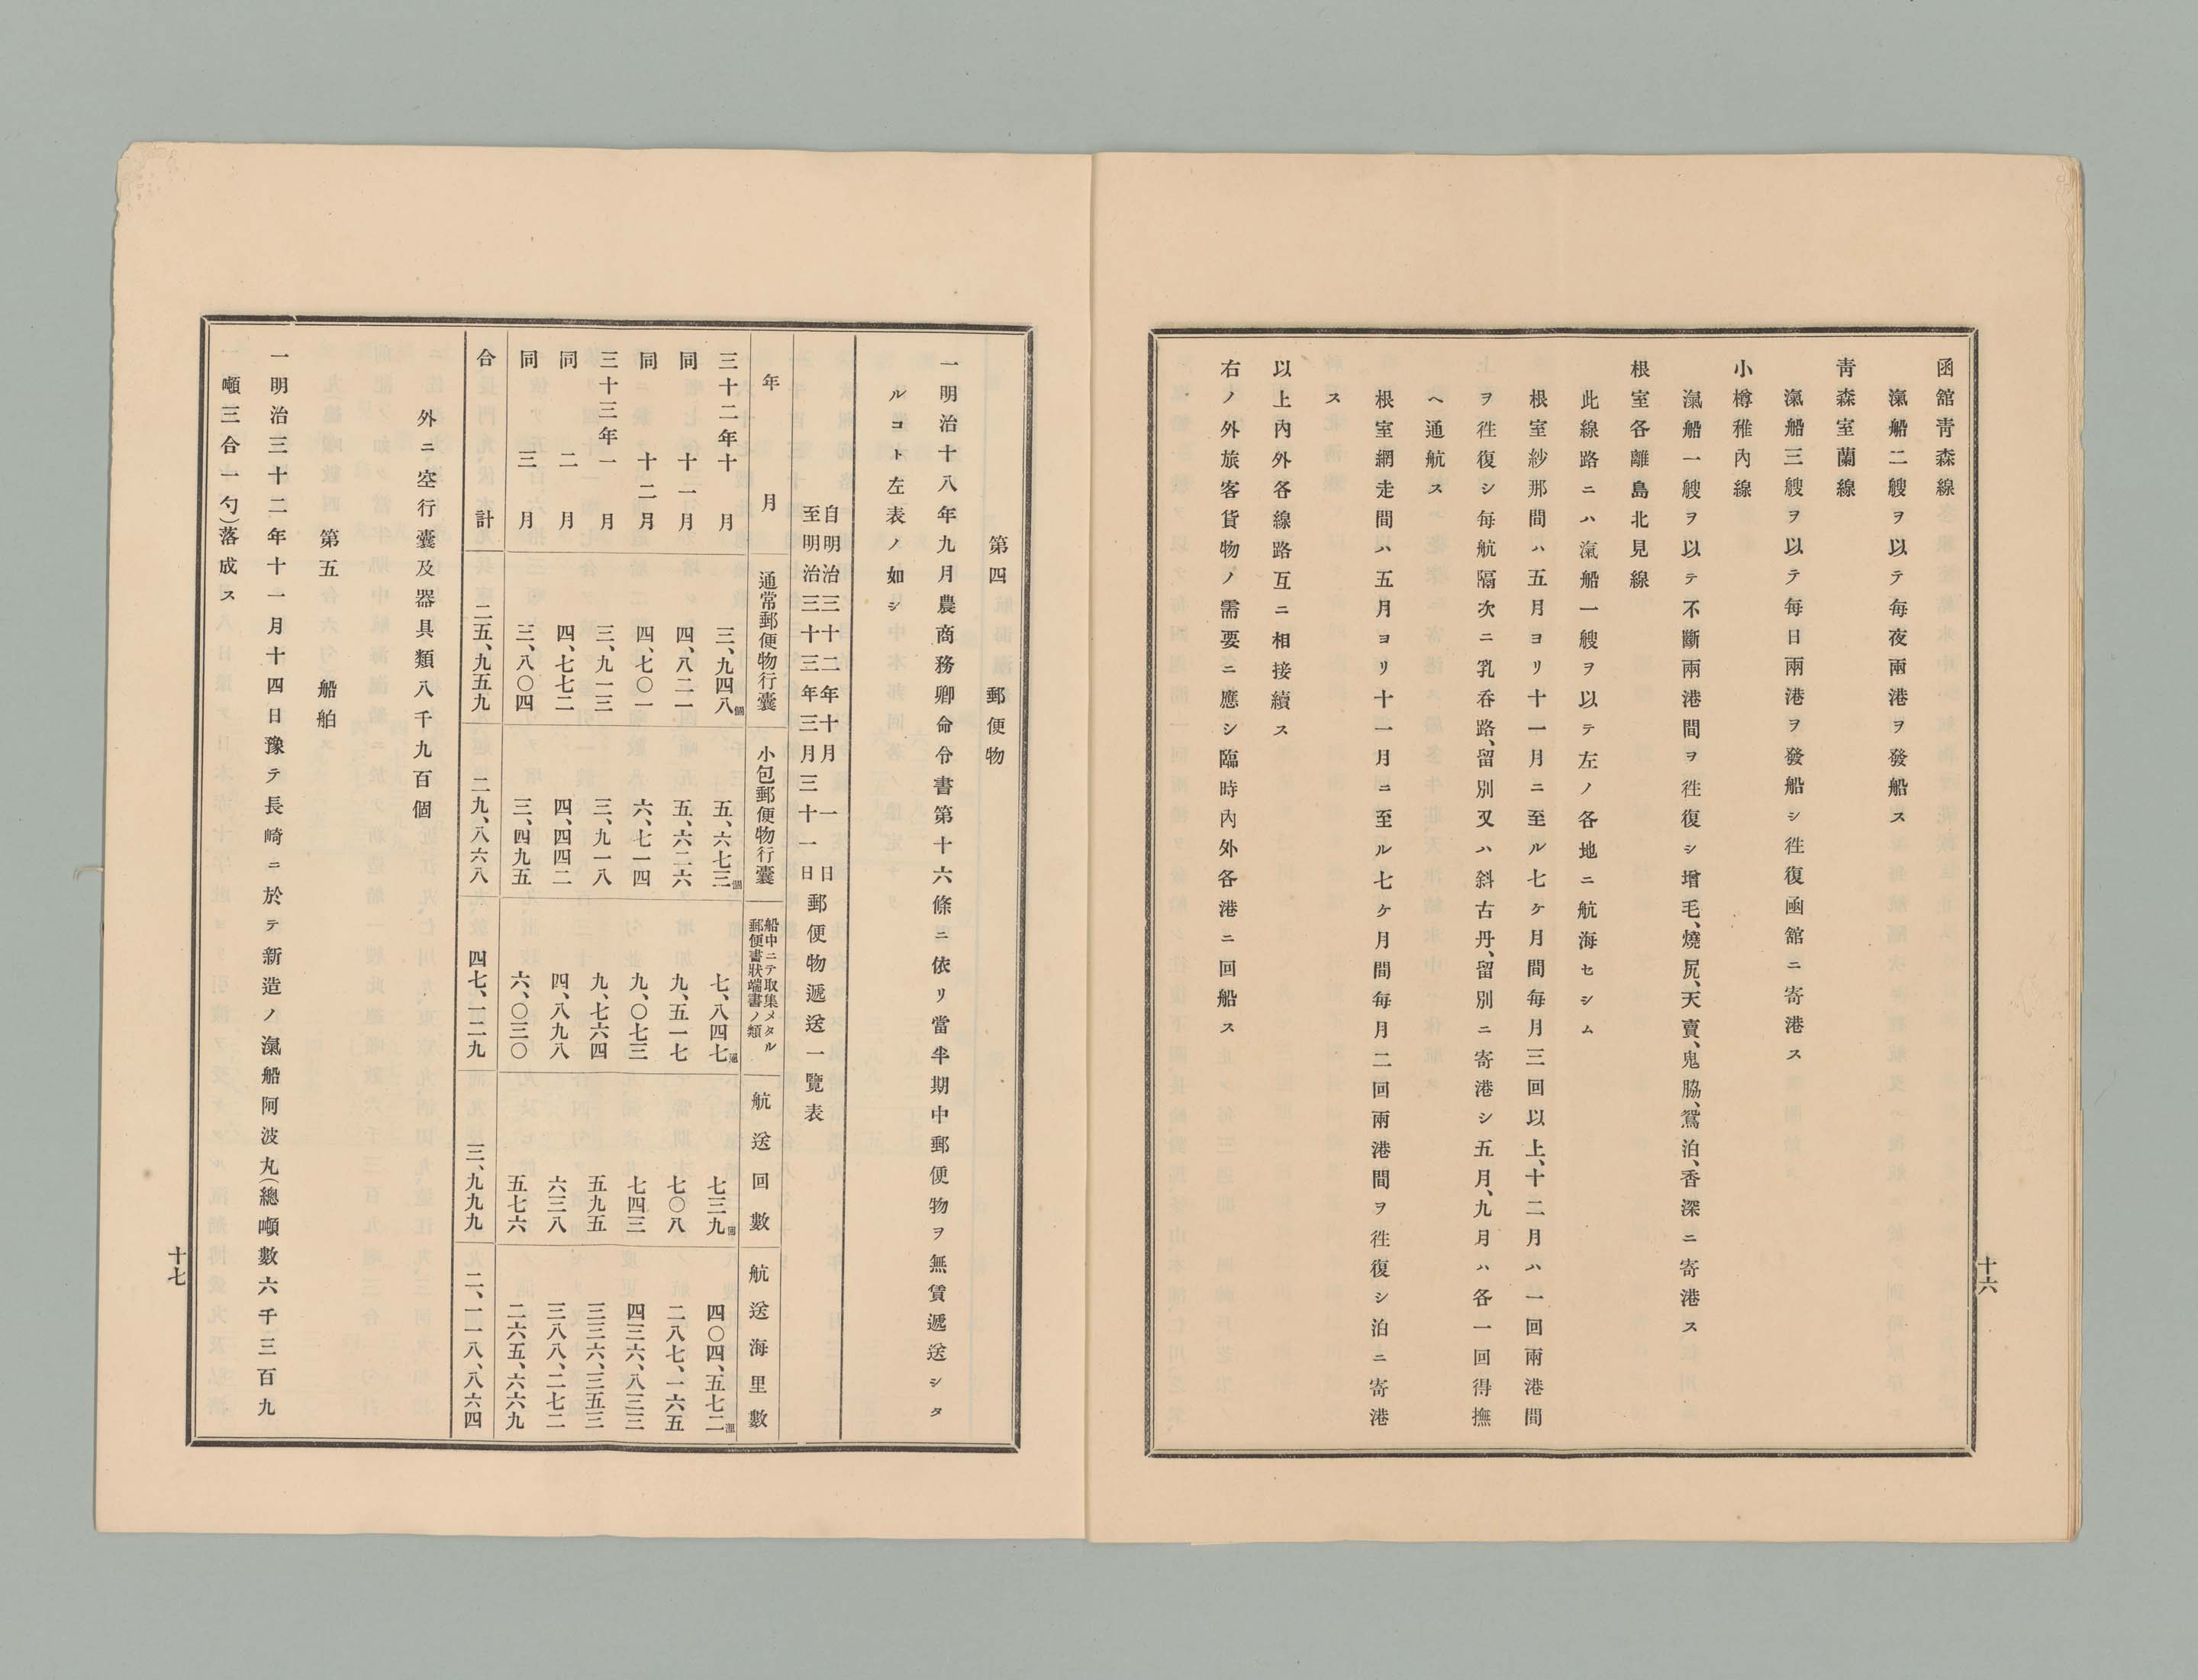 函館靑森線
滊船二艘ヲ以テ每夜兩港ヲ發船ス
靑森室蘭線
滊船三艘ヲ以テ每日兩港ヲ發船シ徃復函館ニ寄港ス
小樽稚內線
滊船一艘ヲ以テ不斷兩港間ヲ徃復シ增毛、燒尻、天賣、鬼脇、鴛泊、香深ニ寄港ス
根室各離島北見線
此線路ニハ滊船一艘ヲ以テ左ノ各地ニ航海セシム
根室紗那間ハ五月ヨリ十一月ニ至ル七ケ月間每月三回以上、十二月ハ一回兩港間
ヲ徃復シ每航隔次ニ乳呑路、留別又ハ斜古丹、留別ニ寄港シ五月、九月ハ各一回得撫
ヘ通航ス
根室網走間ハ五月ヨリ十一月ニ至ル七ケ月間每月二回兩港間ヲ徃復シ泊ニ寄港
ス
以上內外各線路互ニ相接續ス
右ノ外旅客貨物ノ需要ニ應シ臨時內外各港ニ回船ス
十六
第四 郵便物
一明治十八年九月農商務卿命令書第十六條ニ依リ當半期中郵便物ヲ無賃遞送シタ
ルコト左表ノ如シ
自明治三十二年十月一日
至明治三十三年三月三十一日
郵便物遞送一覽表
年月 通常郵便物行囊 小包郵便物行囊 船中ニテ取集メタル郵便書狀端書ノ類 航送回數 航送海里數
三十二年十月 三、九四八個 五、六七三個 七、八四七通 七三九回 四〇四、五七二浬
同十一月 四、八二一 五、六二六 九、五一七 七〇八 二八七、一六五
同十二月 四、七〇一 六、七一四 九、〇七三 七四三 四三六、八三三
三十三年一月 三、九一三 三、九一八 九、七六四 五九五 三三六、三五三
同二月 四、七七二 四、四四二 四、八九八 六三八 三八八、二七二
同三月 三、八〇四 三、四九五 六、〇三〇 五七六 二六五、六六九
合計 二五、九五九 二九、八六八 四七、一二九 三、九九九 二、一一八、八六四
外ニ空行囊及器具類八千九百個
第五 船舶
一明治三十二年十一月十四日豫テ長崎ニ於テ新造ノ滊船阿波丸(總噸數六千三百九
噸三合一勺)落成ス
十七